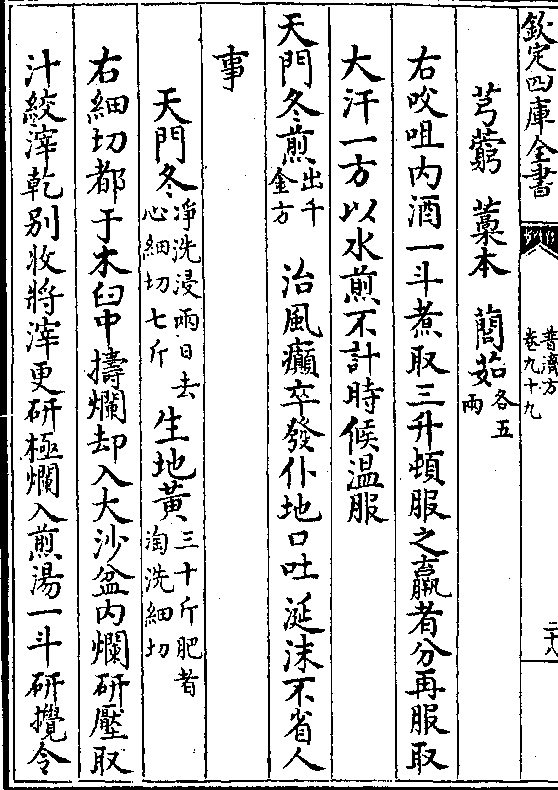 欽定四庫全書
普濟方
卷九十九
二十八
芎藭　藁本　藘茹各五兩
右㕮咀内酒一斗煮取三升頓服之羸者分再服取
大汗一方以水煎不計時候温服
天門冬煎出千金方　治風癲卒發仆地口吐涎沫不省人
事
天門冬净洗浸兩日去心細切七斤　生地黄三十斤肥者淘洗細切
右細切都于木臼中擣爛却入大沙盆内爛研壓取
汁絞滓乾别收將滓更研極爛入煎湯一斗研攪令